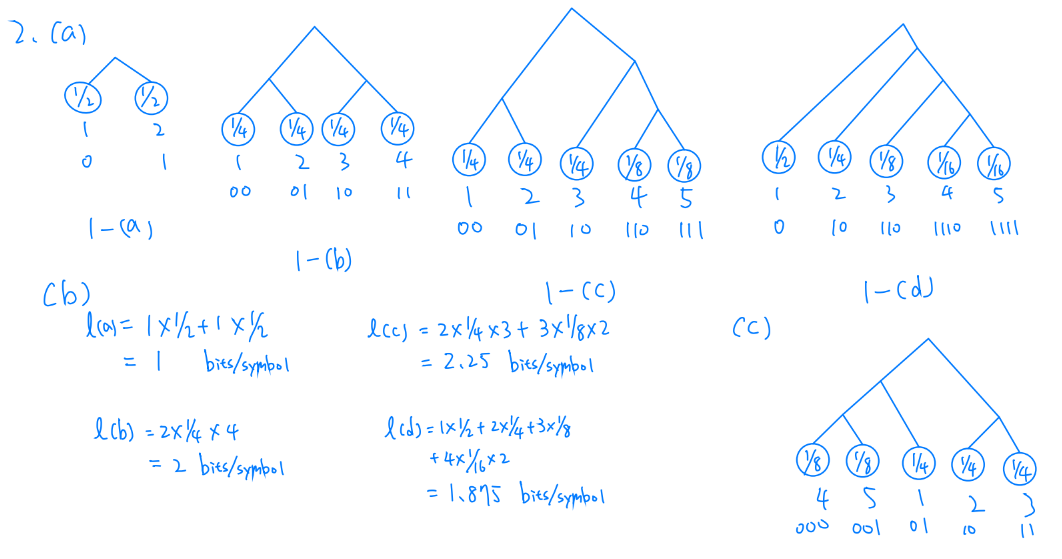 2. (a)
1/2 1/2
1 2
0 1
1-(a)
1/4 1/4 1/4 1/4
1 2 3 4
00 01 10 11
1-(b)
1/4 1/4 1/4 1/8 1/8
1 2 3 4 5
00 01 10 110 111
1-(c)
1/2 1/4 1/8 1/16 1/16
1 2 3 4 5
0 10 110 1110 1111
1-(d)
(b)
l(a) = 1×1/2+1×1/2
= 1 bits/symbol
l(b) = 2×1/4×4
= 2 bits/symbol
l(c) = 2×1/4×3+3×1/8×2
= 2.25 bits/symbol
l(d) = 1×1/2+2×1/4+3×1/8
+4×1/16×2
= 1.875 bits/symbol
(c)
1/8 1/8 1/4 1/4 1/4
4 5 1 2 3
000 001 01 10 11